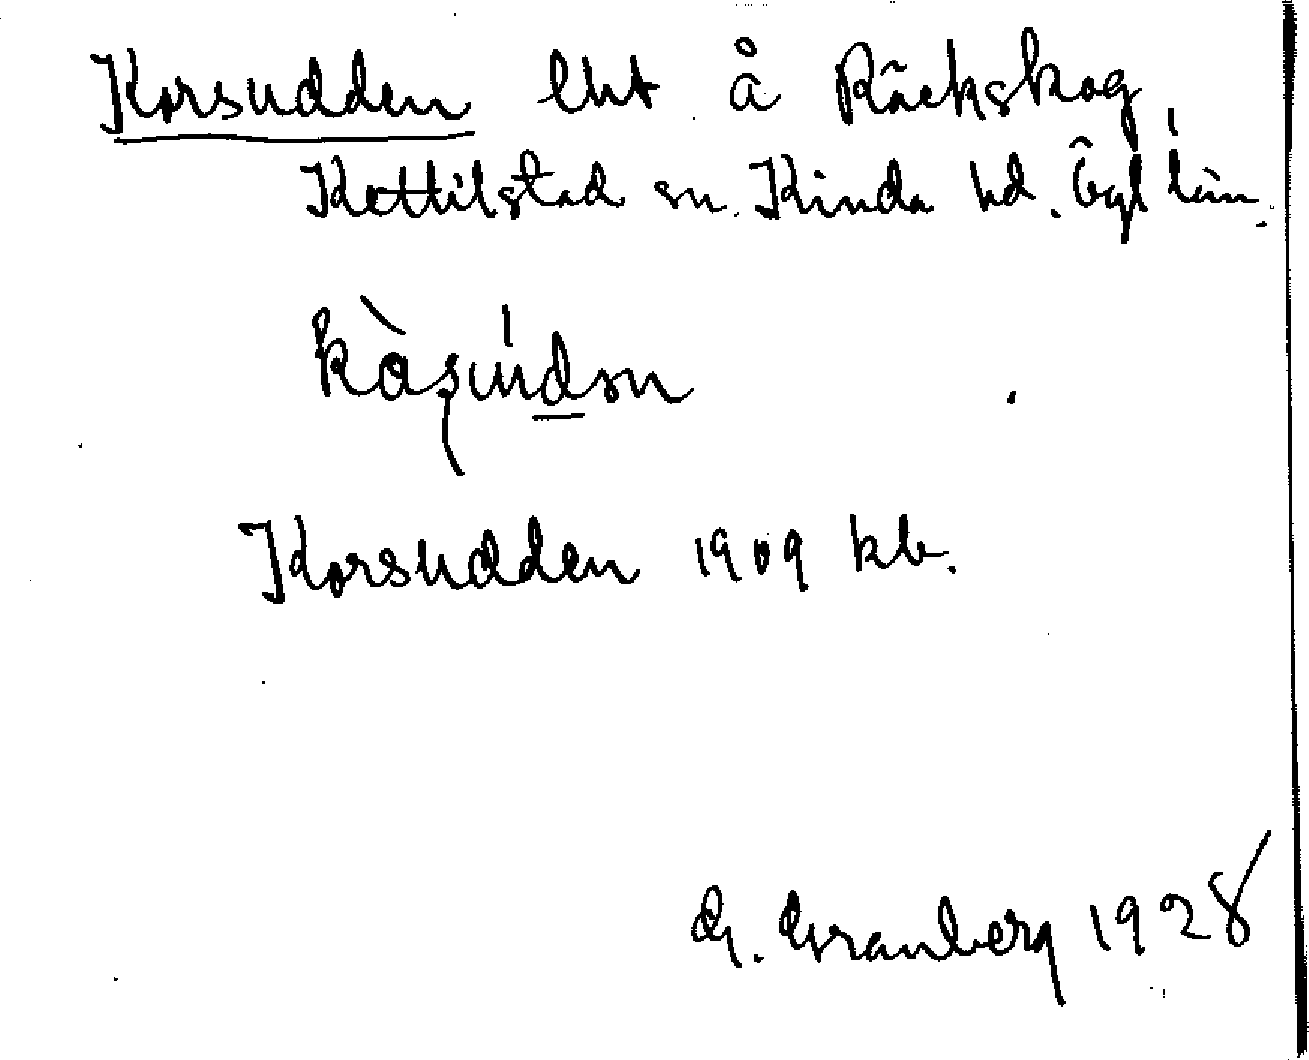 Korsudden lht å Räckskog
Kettilstad sn. Kinda hd. Ögl län.
Korsudden 1909 kb.
G. Granberg 1928